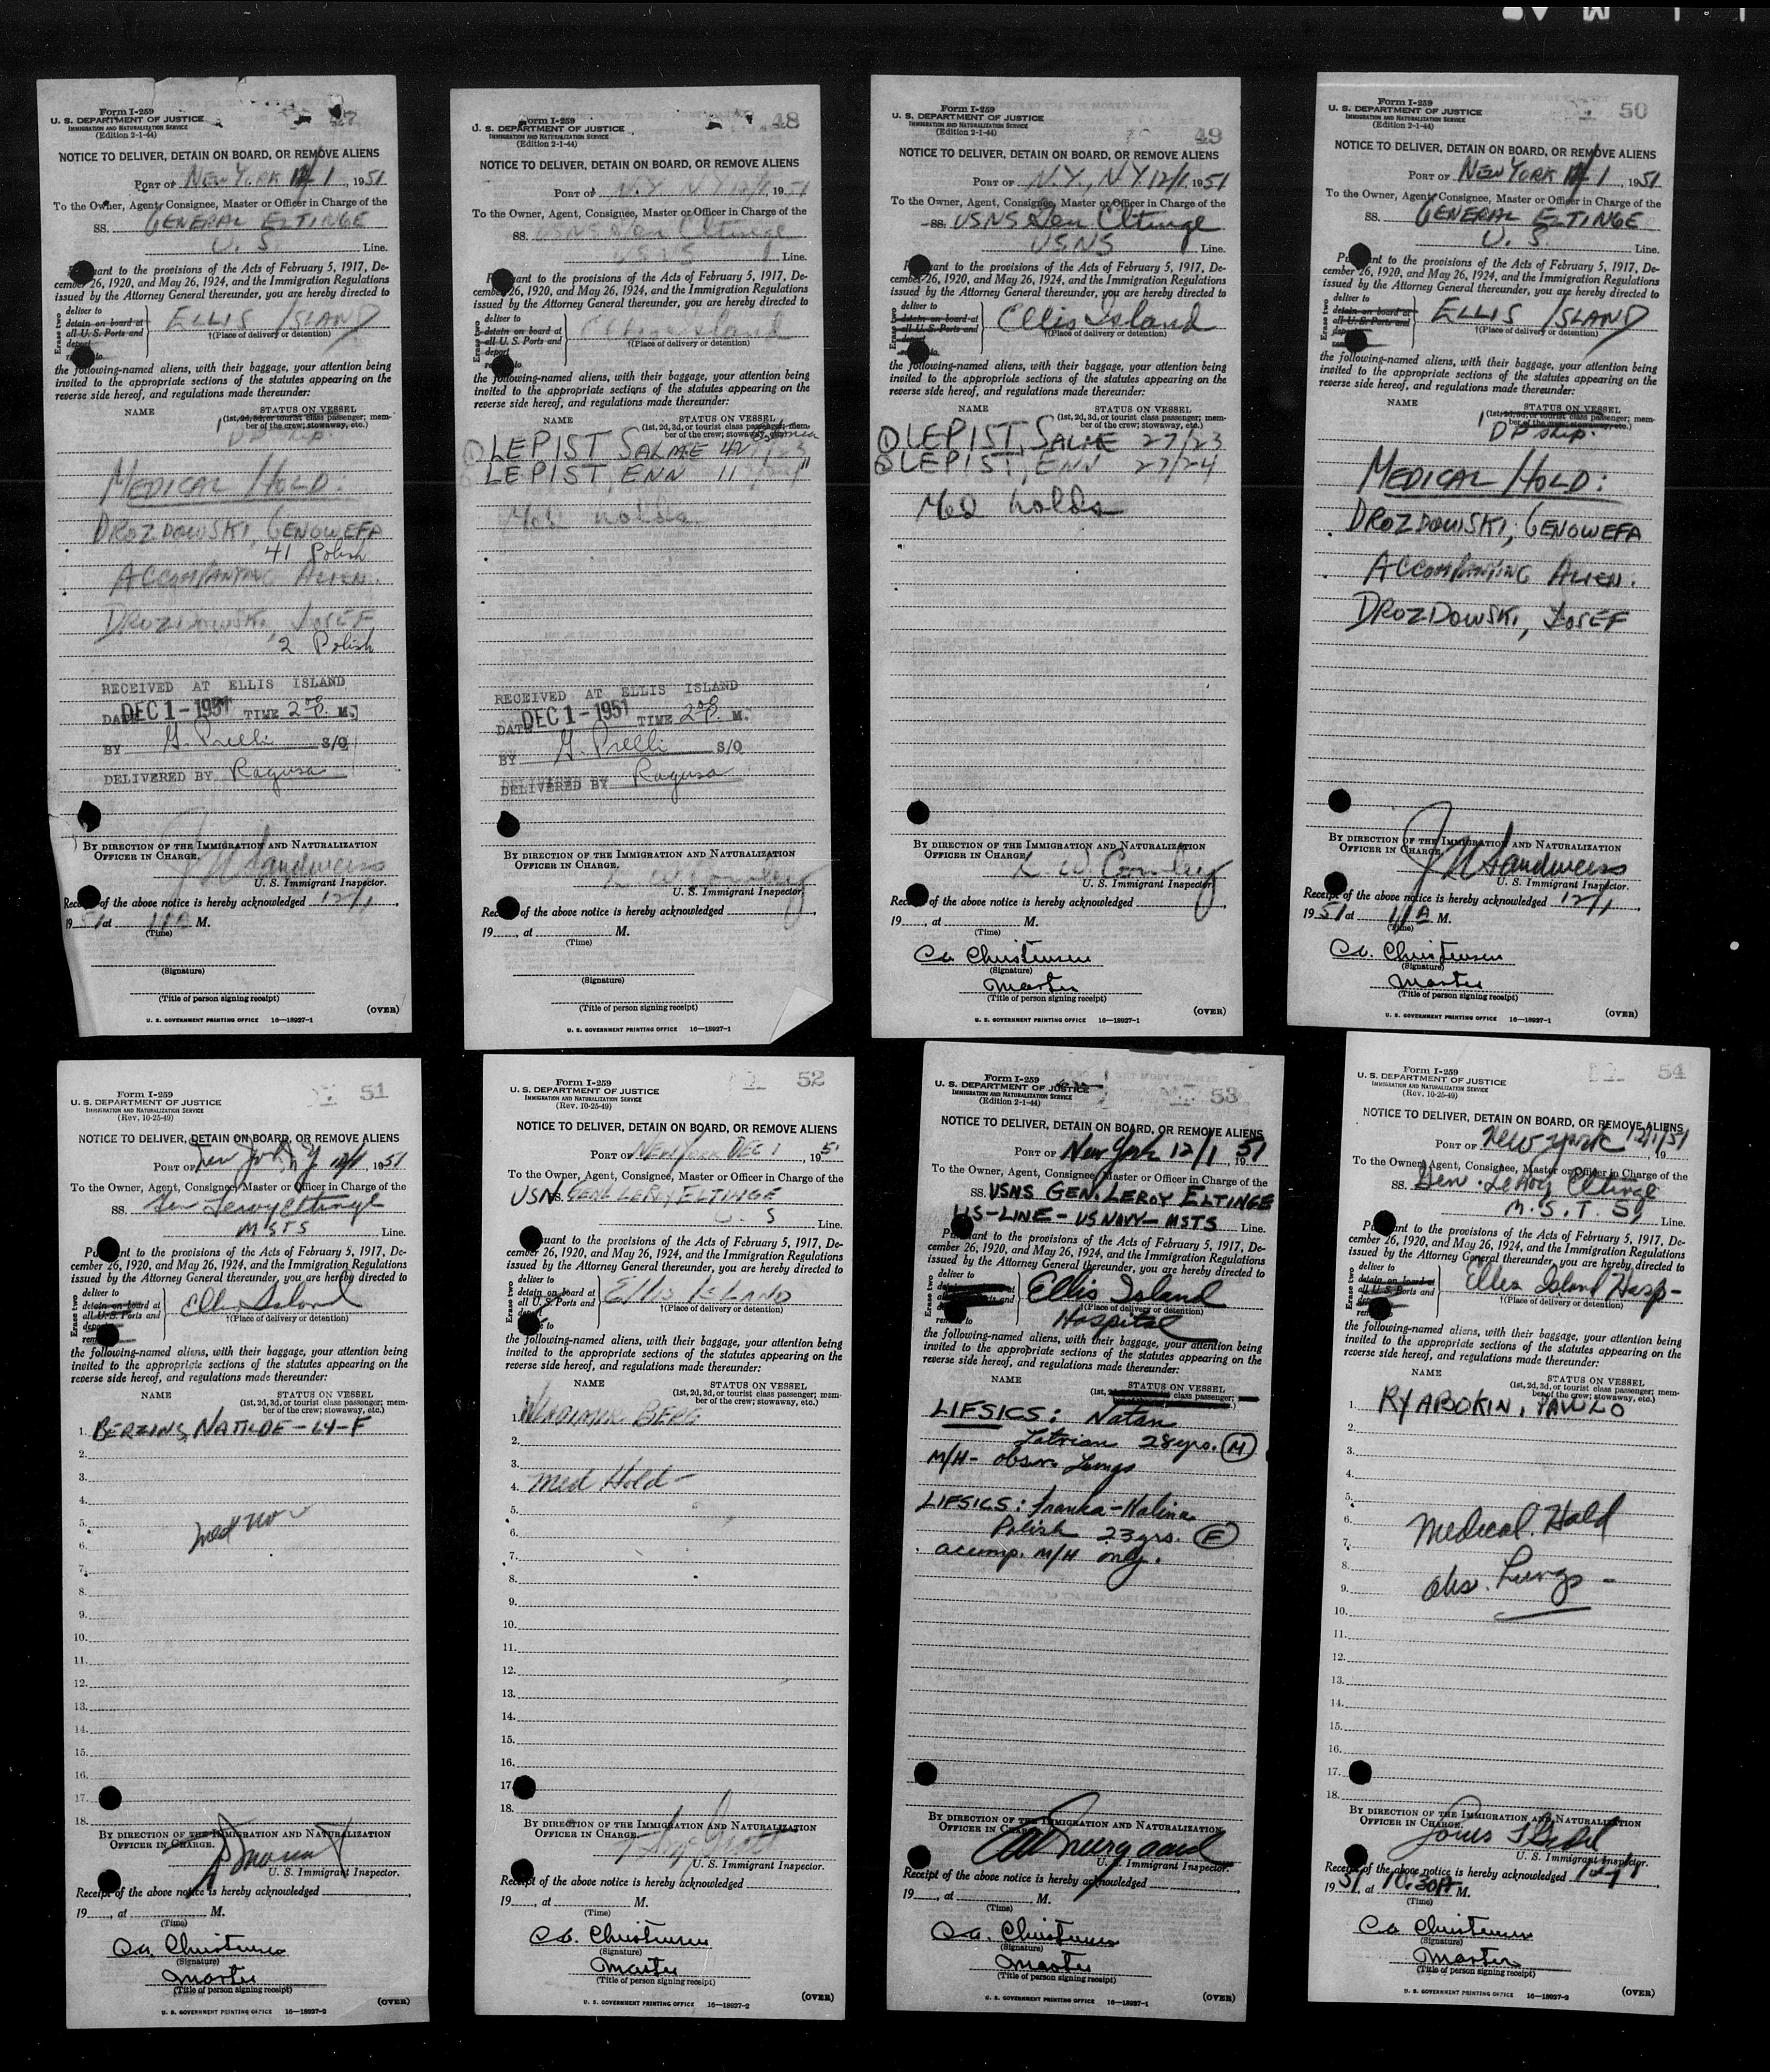 47
Form I-259
U. S. DEPARTMENT OF JUSTICE
IMMIGRATION AND NATURALIZATION SERVICE
(Edition 2-1-44)
NOTICE TO DELIVER, DETAIN ON BOARD, OR REMOVE ALIENS
PORT OF NEW YORK 12/1, 1951
To the Owner, Agent, Consignee, Master or Officer in Charge of the
SS. GENERAL ELTINGE
U. S. Line.
Pursuant to the provisions of the Acts of February 5, 1917, De-
cember 26, 1920, and May 26, 1924, and the Immigration Regulations
issued by the Attorney General thereunder, you are hereby directed to
Erase two
deliver to
detain on board at
all U. S. Ports and
deport
ELLIS ISLAND
†(Place of delivery or detention)
the following-named aliens, with their baggage, your attention being
invited to the appropriate sections of the statutes appearing on the
reverse side hereof, and regulations made thereunder:
NAME STATUS ON VESSEL
(1st, 2d, 3d, or tourist class passenger; mem-
ber of the crew; stowaway, etc.)
DP ship.
MEDICAL HOLD:
DROZDOWSKI, GENOWEFA
41 Polish
ACCOMPANYING ALIEN.
DROZDOWSKI, JOSEF
12 Polish
RECEIVED AT ELLIS ISLAND
DATE DEC 1 - 1951 TIME 2 00 P. M.
BY G. Prelli S/O
DELIVERED BY Ragusa
BY DIRECTION OF THE IMMIGRATION AND NATURALIZATION
OFFICER IN CHARGE.
U. S. Immigrant Inspector.
Receipt of the above notice is hereby acknowledged 12/1,
1951 at 11 A M.
(Time)
(Signature)
(Title of person signing receipt)
(OVER)
U. S. GOVERNMENT PRINTING OFFICE 16—18927-1
48
Form I-259
U. S. DEPARTMENT OF JUSTICE
IMMIGRATION AND NATURALIZATION SERVICE
(Edition 2-1-44)
NOTICE TO DELIVER, DETAIN ON BOARD, OR REMOVE ALIENS
PORT OF N.Y. NY 12/1, 1951
To the Owner, Agent, Consignee, Master or Officer in Charge of the
SS. USNS Gen Eltinge
USNS Line.
Pursuant to the provisions of the Acts of February 5, 1917, De-
cember 26, 1920, and May 26, 1924, and the Immigration Regulations
issued by the Attorney General thereunder, you are hereby directed to
Erase two
deliver to
detain on board at
all U. S. Ports and
deport
remove to
Ellis Island
†(Place of delivery or detention)
the following-named aliens, with their baggage, your attention being
invited to the appropriate sections of the statutes appearing on the
reverse side hereof, and regulations made thereunder:
NAME STATUS ON VESSEL
(1st, 2d, 3d, or tourist class passenger; mem-
ber of the crew; stowaway, etc.)
① LEPIST SALME 42
LEPIST, ENN 11 "
Med holds
RECEIVED AT ELLIS ISLAND
DATE DEC 1 - 1951 TIME 2 00 P. M.
BY G. Prelli S/O
DELIVERED BY Ragusa
BY DIRECTION OF THE IMMIGRATION AND NATURALIZATION
OFFICER IN CHARGE.
U. S. Immigrant Inspector.
Receipt of the above notice is hereby acknowledged
19, at M.
(Time)
(Signature)
(Title of person signing receipt)
U. S. GOVERNMENT PRINTING OFFICE 16—18927-1
49
Form I-259
U. S. DEPARTMENT OF JUSTICE
IMMIGRATION AND NATURALIZATION SERVICE
(Edition 2-1-44)
NOTICE TO DELIVER, DETAIN ON BOARD, OR REMOVE ALIENS
PORT OF N.Y., NY 12/1, 1951
To the Owner, Agent, Consignee, Master or Officer in Charge of the
SS. USNS Gen Eltinge
USNS Line.
Pursuant to the provisions of the Acts of February 5, 1917, De-
cember 26, 1920, and May 26, 1924, and the Immigration Regulations
issued by the Attorney General thereunder, you are hereby directed to
Erase two
deliver to
detain on board at
all U. S. Ports and
deport
Ellis Island
†(Place of delivery or detention)
the following-named aliens, with their baggage, your attention being
invited to the appropriate sections of the statutes appearing on the
reverse side hereof, and regulations made thereunder:
NAME STATUS ON VESSEL
(1st, 2d, 3d, or tourist class passenger; mem-
ber of the crew; stowaway, etc.)
① LEPIST, SALME 27/23
② LEPIST, ENN 27/24
Med holds
BY DIRECTION OF THE IMMIGRATION AND NATURALIZATION
OFFICER IN CHARGE.
U. S. Immigrant Inspector.
Receipt of the above notice is hereby acknowledged
19, at M.
(Time)
Ca. Christensen
(Signature)
Master
(Title of person signing receipt)
(OVER)
U. S. GOVERNMENT PRINTING OFFICE 16—18927-1
50
Form I-259
U. S. DEPARTMENT OF JUSTICE
IMMIGRATION AND NATURALIZATION SERVICE
(Edition 2-1-44)
NOTICE TO DELIVER, DETAIN ON BOARD, OR REMOVE ALIENS
PORT OF NEW YORK 12/1, 1951
To the Owner, Agent, Consignee, Master or Officer in Charge of the
SS. GENERAL ELTINGE
U. S. Line.
Pursuant to the provisions of the Acts of February 5, 1917, De-
cember 26, 1920, and May 26, 1924, and the Immigration Regulations
issued by the Attorney General thereunder, you are hereby directed to
Erase two
deliver to
detain on board at
all U. S. Ports and
deport
ELLIS ISLAND
†(Place of delivery or detention)
the following-named aliens, with their baggage, your attention being
invited to the appropriate sections of the statutes appearing on the
reverse side hereof, and regulations made thereunder:
NAME STATUS ON VESSEL
(1st, 2d, 3d, or tourist class passenger; mem-
ber of the crew; stowaway, etc.)
DP ship.
MEDICAL HOLD:
DROZDOWSKI, GENOWEFA
ACCOMPANYING ALIEN.
DROZDOWSKI, JOSEF
BY DIRECTION OF THE IMMIGRATION AND NATURALIZATION
OFFICER IN CHARGE.
U. S. Immigrant Inspector.
Receipt of the above notice is hereby acknowledged 12/1,
1951 at 11 A M.
(Time)
Ca. Christensen
(Signature)
Master
(Title of person signing receipt)
(OVER)
U. S. GOVERNMENT PRINTING OFFICE 16—18927-1
51
Form I-259
U. S. DEPARTMENT OF JUSTICE
IMMIGRATION AND NATURALIZATION SERVICE
(Rev. 10-25-49)
NOTICE TO DELIVER, DETAIN ON BOARD, OR REMOVE ALIENS
PORT OF New York N.Y. 12/1, 1951
To the Owner, Agent, Consignee, Master or Officer in Charge of the
SS. Gen Leroy Eltinge
MSTS Line.
Pursuant to the provisions of the Acts of February 5, 1917, De-
cember 26, 1920, and May 26, 1924, and the Immigration Regulations
issued by the Attorney General thereunder, you are hereby directed to
Erase two
deliver to
detain on board at
all U. S. Ports and
deport
remove to
Ellis Island
†(Place of delivery or detention)
the following-named aliens, with their baggage, your attention being
invited to the appropriate sections of the statutes appearing on the
reverse side hereof, and regulations made thereunder:
NAME STATUS ON VESSEL
(1st, 2d, 3d, or tourist class passenger; mem-
ber of the crew; stowaway, etc.)
1. BERZINS, NATILDE - 64 - F
2.
3.
4.
5.
6.
7.
8.
9.
10.
11.
12.
13.
14.
15.
16.
17.
18.
BY DIRECTION OF THE IMMIGRATION AND NATURALIZATION
OFFICER IN CHARGE.
U. S. Immigrant Inspector.
Receipt of the above notice is hereby acknowledged
19, at M.
(Time)
Ca. Christensen
(Signature)
Master
(Title of person signing receipt)
(OVER)
U. S. GOVERNMENT PRINTING OFFICE 16—18927-2
52
Form I-259
U. S. DEPARTMENT OF JUSTICE
IMMIGRATION AND NATURALIZATION SERVICE
(Rev. 10-25-49)
NOTICE TO DELIVER, DETAIN ON BOARD, OR REMOVE ALIENS
PORT OF NEW YORK DEC 1, 1951
To the Owner, Agent, Consignee, Master or Officer in Charge of the
USNS GENL LEROY ELTINGE
U. S Line.
Pursuant to the provisions of the Acts of February 5, 1917, De-
cember 26, 1920, and May 26, 1924, and the Immigration Regulations
issued by the Attorney General thereunder, you are hereby directed to
Erase two
deliver to
detain on board at
all U. S. Ports and
deport
remove to
ELLIS ISLAND
†(Place of delivery or detention)
the following-named aliens, with their baggage, your attention being
invited to the appropriate sections of the statutes appearing on the
reverse side hereof, and regulations made thereunder:
NAME STATUS ON VESSEL
(1st, 2d, 3d, or tourist class passenger; mem-
ber of the crew; stowaway, etc.)
1. WLADIMIR BERG
2.
3.
4. Med Hold -
5.
6.
7.
8.
9.
10.
11.
12.
13.
14.
15.
16.
17.
18.
BY DIRECTION OF THE IMMIGRATION AND NATURALIZATION
OFFICER IN CHARGE.
U. S. Immigrant Inspector.
Receipt of the above notice is hereby acknowledged
19, at M.
(Time)
Ca. Christensen
(Signature)
Master
(Title of person signing receipt)
(OVER)
U. S. GOVERNMENT PRINTING OFFICE 16—18927-2
53
Form I-259
U. S. DEPARTMENT OF JUSTICE
IMMIGRATION AND NATURALIZATION SERVICE
(Edition 2-1-44)
NOTICE TO DELIVER, DETAIN ON BOARD, OR REMOVE ALIENS
PORT OF New York 12/1, 1951
To the Owner, Agent, Consignee, Master or Officer in Charge of the
SS. USNS GEN. LEROY ELTINGE
US-LINE - US NAVY - MSTS Line.
Pursuant to the provisions of the Acts of February 5, 1917, De-
cember 26, 1920, and May 26, 1924, and the Immigration Regulations
issued by the Attorney General thereunder, you are hereby directed to
Erase two
deliver to
remove to
Ellis Island
†(Place of delivery or detention)
Hospital
the following-named aliens, with their baggage, your attention being
invited to the appropriate sections of the statutes appearing on the
reverse side hereof, and regulations made thereunder:
NAME STATUS ON VESSEL
(1st, class passenger;
LIFSICS: Natan
Latvian 28 yrs. (M)
M/H - obsrv. Lungs
LIFSICS: Franka-Halina
Polish 23 yrs. (F)
accomp. M/H only.
BY DIRECTION OF THE IMMIGRATION AND NATURALIZATION
OFFICER IN CHARGE.
U. S. Immigrant Inspector.
Receipt of the above notice is hereby acknowledged
19, at M.
(Time)
Ca. Christensen
(Signature)
Master
(Title of person signing receipt)
(OVER)
U. S. GOVERNMENT PRINTING OFFICE 16—18927-1
54
Form I-259
U. S. DEPARTMENT OF JUSTICE
IMMIGRATION AND NATURALIZATION SERVICE
(Rev. 10-25-49)
NOTICE TO DELIVER, DETAIN ON BOARD, OR REMOVE ALIENS
PORT OF New York 12/1/51, 19
To the Owner, Agent, Consignee, Master or Officer in Charge of the
SS. Gen. LeRoy Eltinge
M.S.T.S. Line.
Pursuant to the provisions of the Acts of February 5, 1917, De-
cember 26, 1920, and May 26, 1924, and the Immigration Regulations
issued by the Attorney General thereunder, you are hereby directed to
Erase two
deliver to
detain on board at
all U. S. Ports and
deport
remove to
Ellis Island Hosp-
†(Place of delivery or detention)
the following-named aliens, with their baggage, your attention being
invited to the appropriate sections of the statutes appearing on the
reverse side hereof, and regulations made thereunder:
NAME STATUS ON VESSEL
(1st, 2d, 3d, or tourist class passenger; mem-
ber of the crew; stowaway, etc.)
1. RYABOKIN, PAWLO
2.
3.
4.
5.
6. Medical Hold
7.
8.
9. obs. Lungs -
10.
11.
12.
13.
14.
15.
16.
17.
18.
BY DIRECTION OF THE IMMIGRATION AND NATURALIZATION
OFFICER IN CHARGE.
U. S. Immigrant Inspector.
Receipt of the above notice is hereby acknowledged 12/1
1951, at 10:30 A M.
(Time)
Ca. Christensen
(Signature)
Master
(Title of person signing receipt)
(OVER)
U. S. GOVERNMENT PRINTING OFFICE 16—18927-2